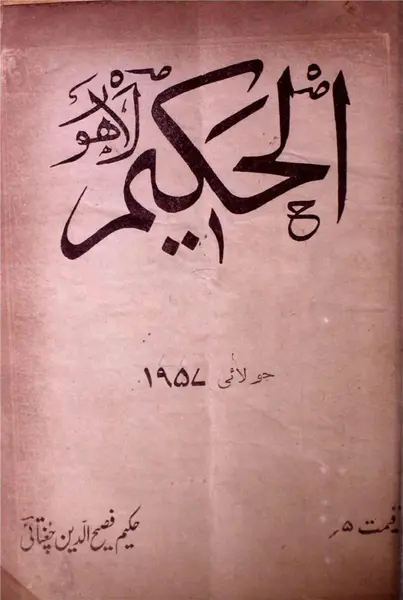 الحکیم
لاہور
جولائی ۱۹۵۷
قیمت ۵ر
حکیم فصیح الدین چغتائی